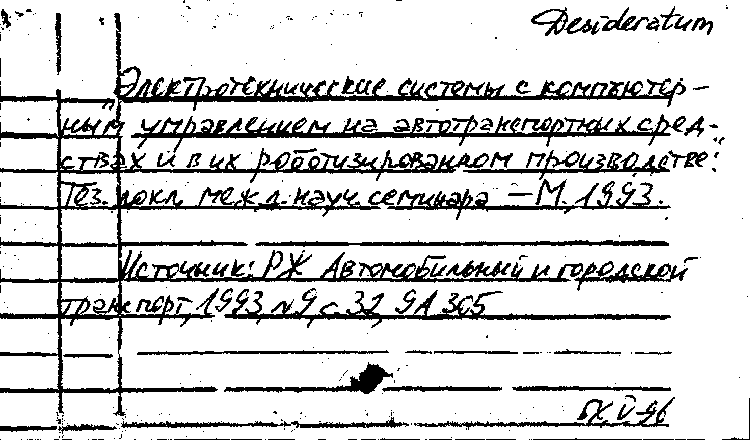 Desideratum
"Электротехнические системы с компьютер-
ным управлением на автотранспортных сред-
ствах и в их роботизированном производстве":
Тез. докл. межд. науч. семинара – М. 1993.
Источник: РЖ Автомобильный и городской
транспорт, 1993, №9, с. 32, 9А 305
БХ. V-96